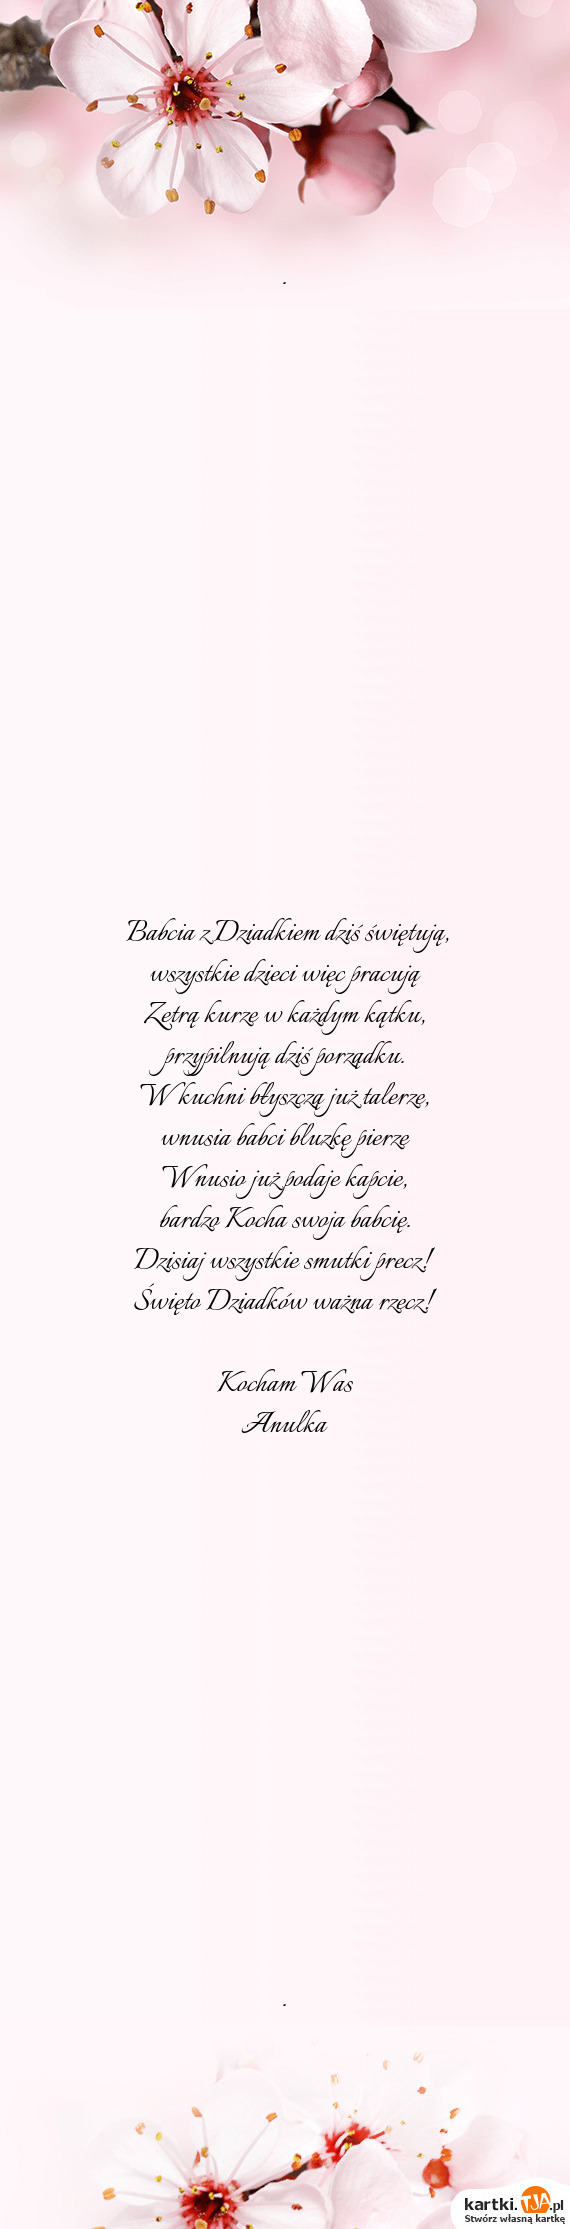 .
Babcia z Dziadkiem dziś świętują,
wszystkie dzieci więc pracują
Zetrą kurze w każdym kątku,
przypilnują dziś porządku.
W kuchni błyszczą już talerze,
wnusia babci bluzkę pierze
Wnusio już podaje kapcie,
bardzo Kocha swoja babcię.
Dzisiaj wszystkie smutki precz!
Święto Dziadków ważna rzecz!
Kocham Was
Anulka
.
kartki.TJA.pl
Stwórz własną kartkę